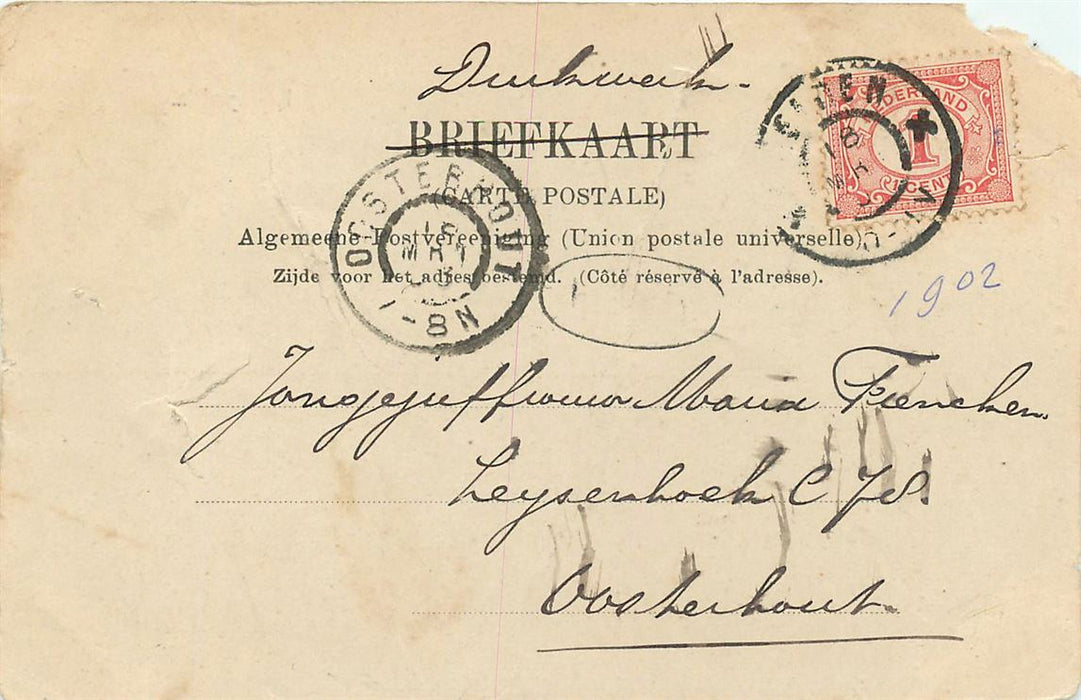 Drukwerk.
BRIEFKAART
(CARTE POSTALE)
Algemeene Postvereeniging (Union postale universelle)
Zijde voor het adres bestemd. (Côté réservé à l'adresse).
NEDERLAND
1
1 CENT
ETTEN
OOSTERHOUT
MRT
7-8N
1902
Jongejuffrouw Maria Fiencken
Leysenhoek C 78.
Oosterhout